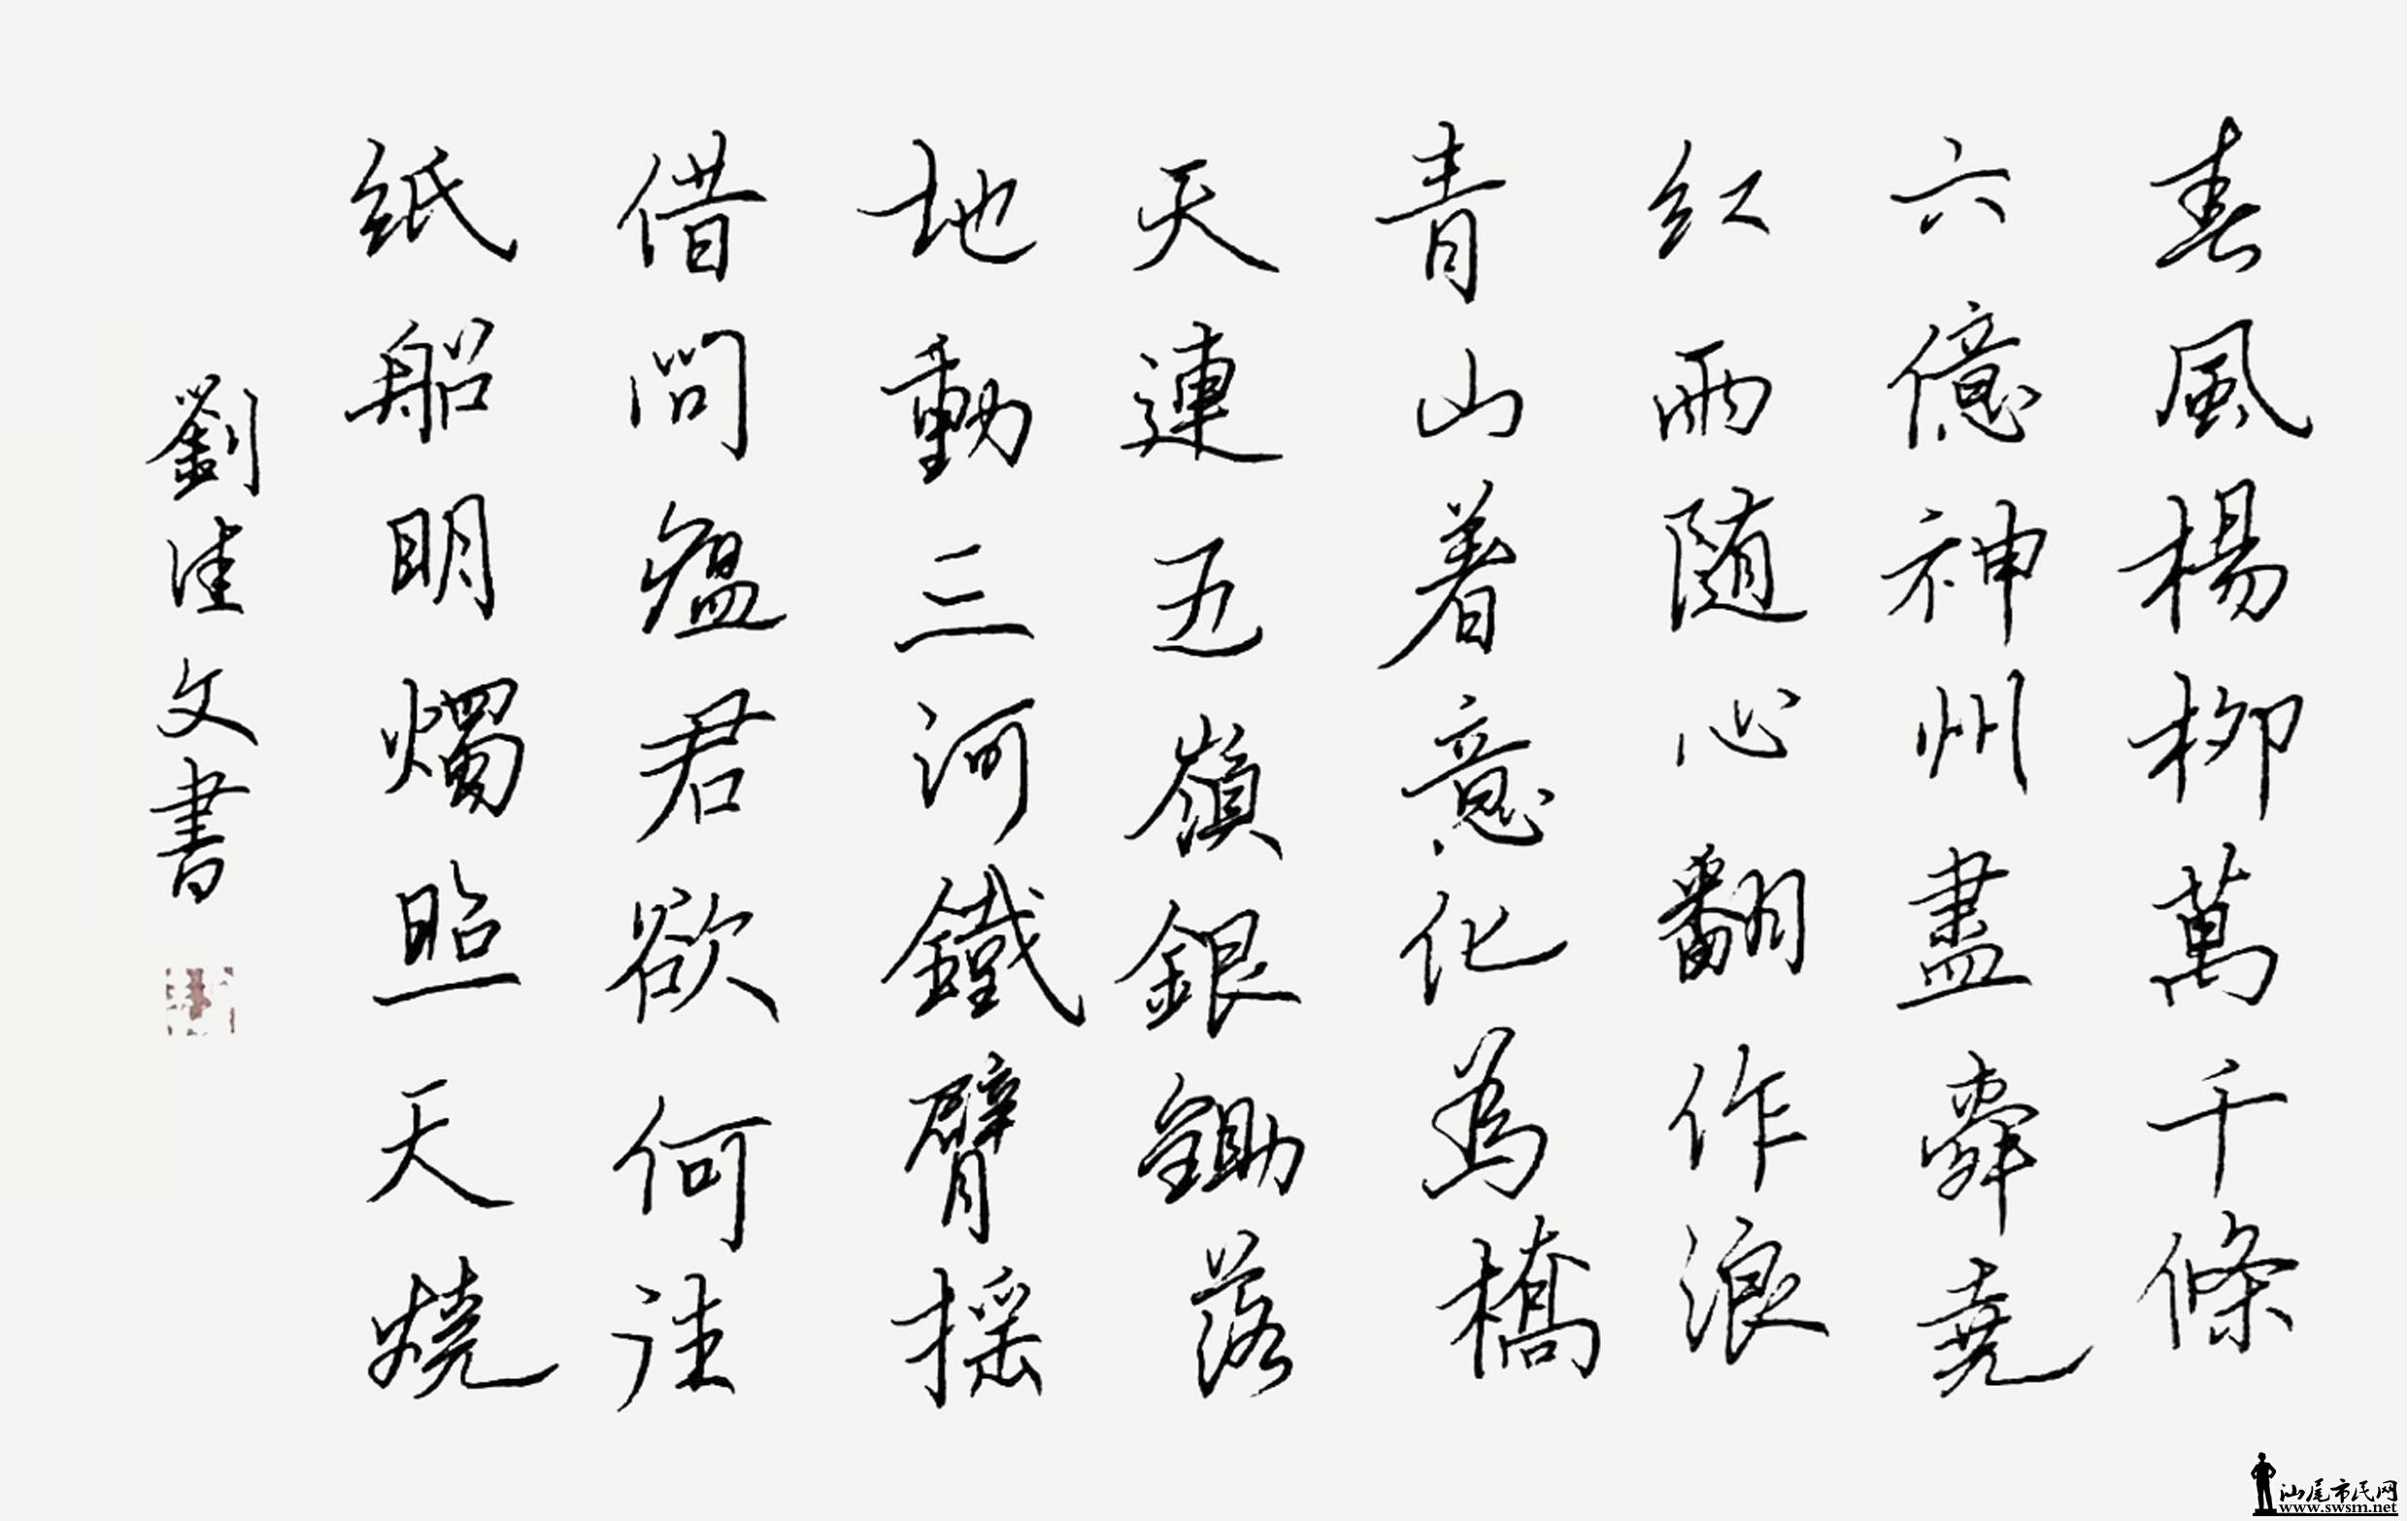 春風楊柳萬千條
六億神州盡舜堯
紅雨随心翻作浪
青山着意化為橋
天連五嶺銀鋤落
地動三河鐵臂摇
借問瘟君欲何往
紙船明燭照天燒
劉佳文書
汕尾市民网
www.swsm.net